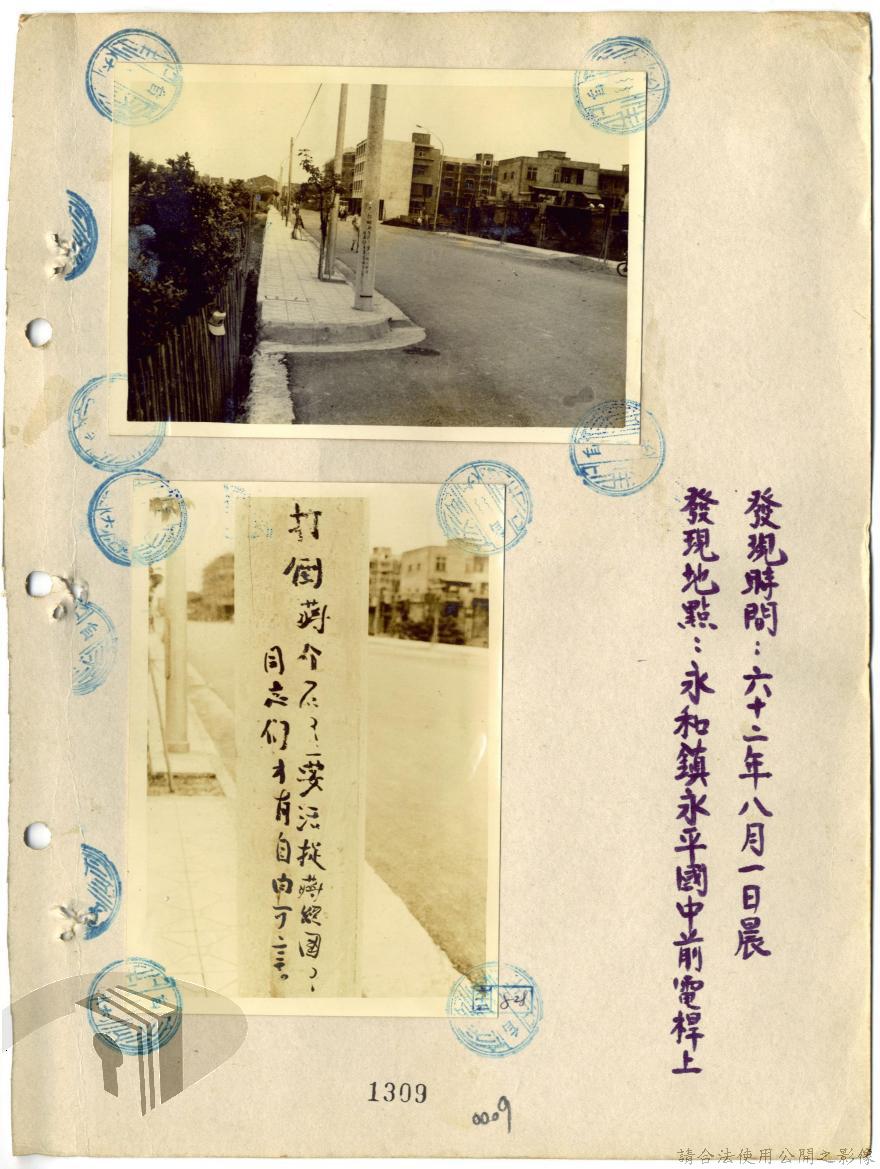 發現時間：六十二年八月一日晨
發現地點：永和鎮永平國中前電桿上
打倒蔣介石，要活捉蔣經國，
同志们才有自由可言。
8-28
1309
0009
請合法使用公開之影像